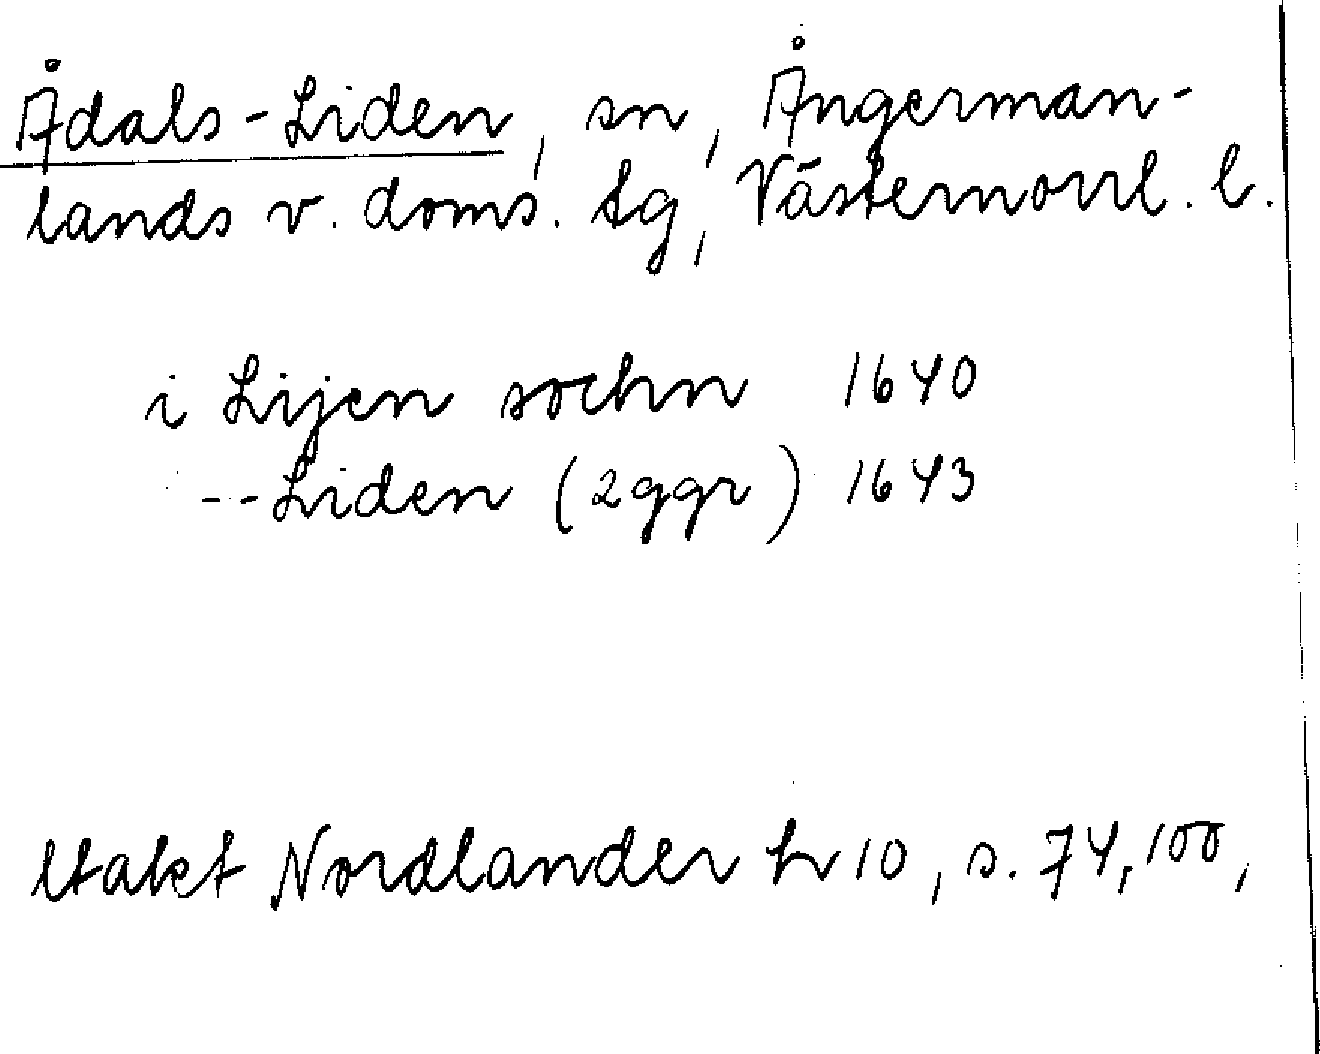 Ådals-Liden, sn, Ångerman-
lands v. doms. tg, Västernorrl. l.
i Lijen sochn 1640
-- Liden (2 ggr) 1643
Utakt Nordlander h 10, s. 74, 100,